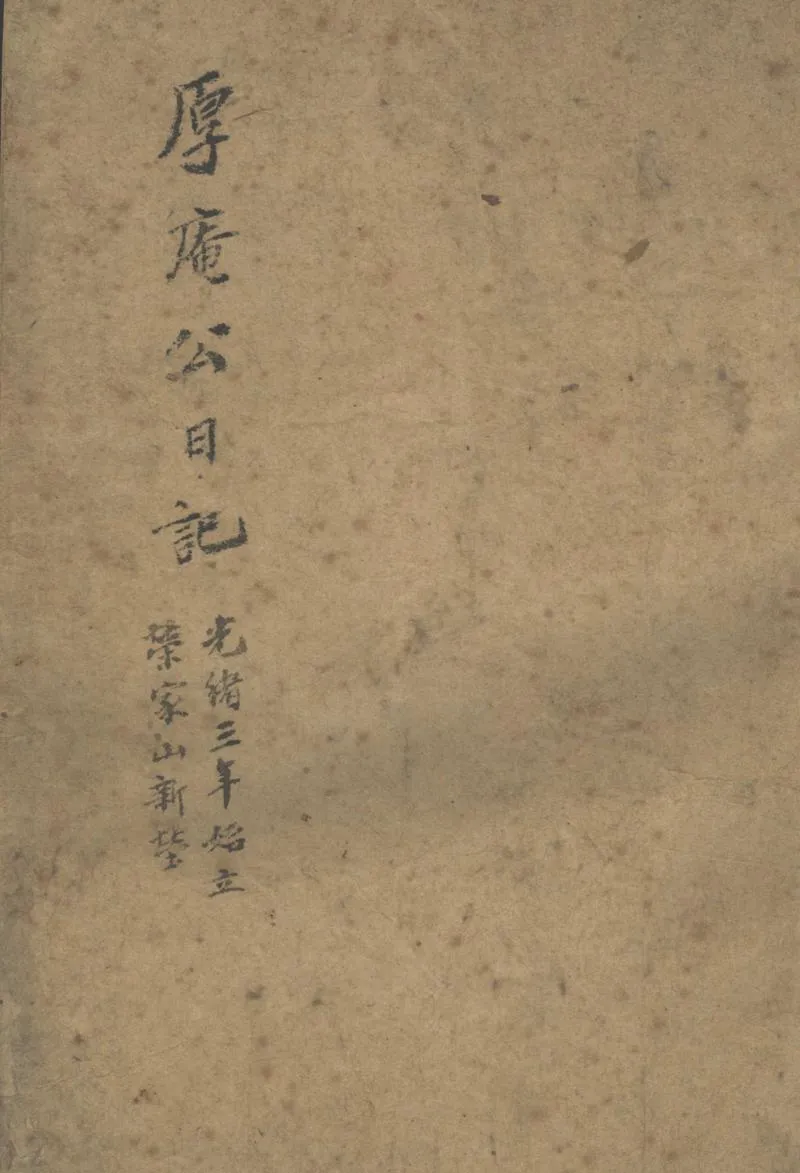 厚庵公日記
光緒三年始立
榮家山新塋